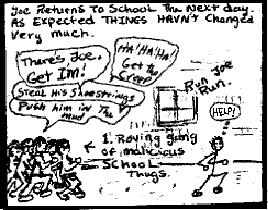 Joe Returns To School The Next day.
As Expected THINGS HAVN'T Changed
Very much.
There's Joe,
Get Im!
HA! HA! HA!
Get the
Creep
Steal His Shoestrings
Push him in The
mud
Run Joe
Run.
HELP!
1. Roving gang
of malicious
School
Thugs.